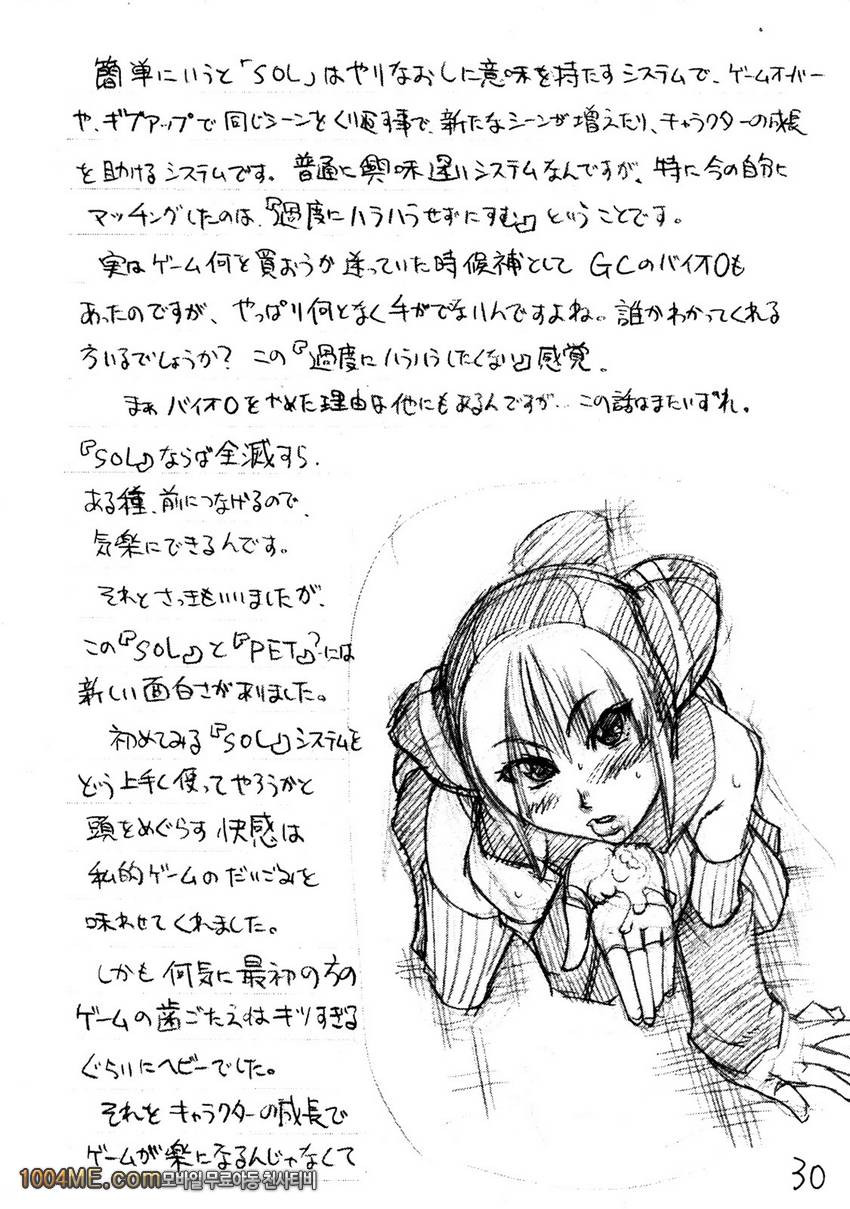 簡単にいうと「SOL」はやりなおしに意味を持たすシステムで、ゲームオーバー
や、ギブアップで同じシーンをくり返す事で、新たなシーンが増えたり、キャラクターの成長
を助けるシステムです。普通に興味深いシステムなんですが、特に今の自分に
マッチングしたのは、『過度にハラハラせずにすむ』ということです。
実はゲーム何を買おうか迷っていた時候補として GCのバイオ0も
あったのですが、やっぱり何となく手がでないんですよね。誰かわかってくれる
方いるでしょうか？この『過度にハラハラしたくない』感覚。
まぁバイオ0をやめた理由は他にもあるんですが…この話はまたいずれ。
『SOL』ならば全滅すら、
ある種、前につなげるので、
気楽にできるんです。
それとさっきもいいましたが、
この『SOL』と『PET』には
新しい面白さがありました。
初めてみる『SOL』システムを
どう上手く使ってやろうかと
頭をめぐらす快感は
私的ゲームのだいごみを
味わせてくれました。
しかも何気に最初の方の
ゲームの歯ごたえはキツすぎる
ぐらいにヘビーでした。
それをキャラクターの成長で
ゲームが楽になるんじゃなくて
30
1004ME.com모바일 무료야동 천사티비